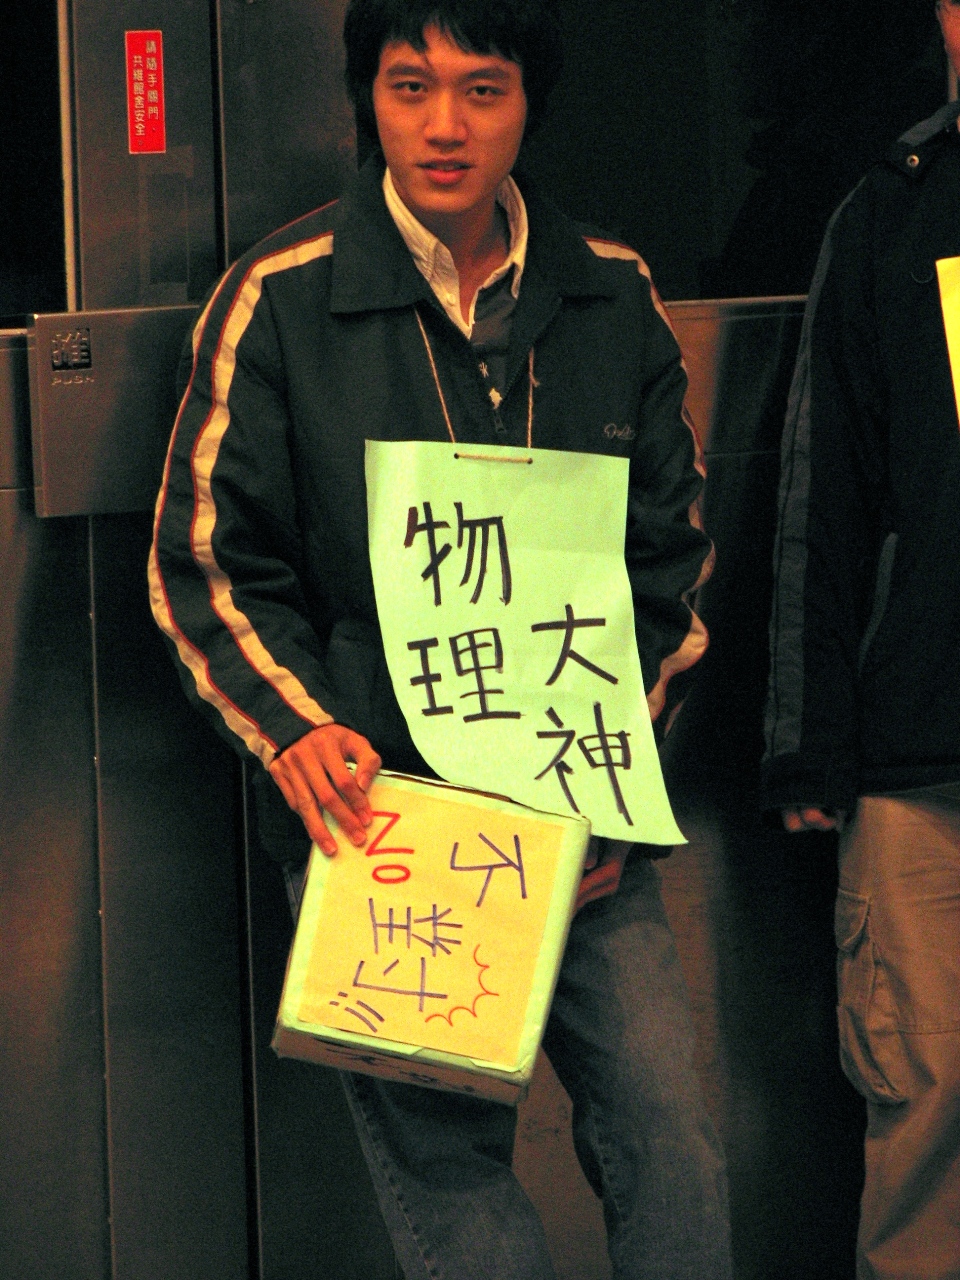 請隨手關門、
共維館舍安全
推
PUSH
物理
大神
不
NO 對!!